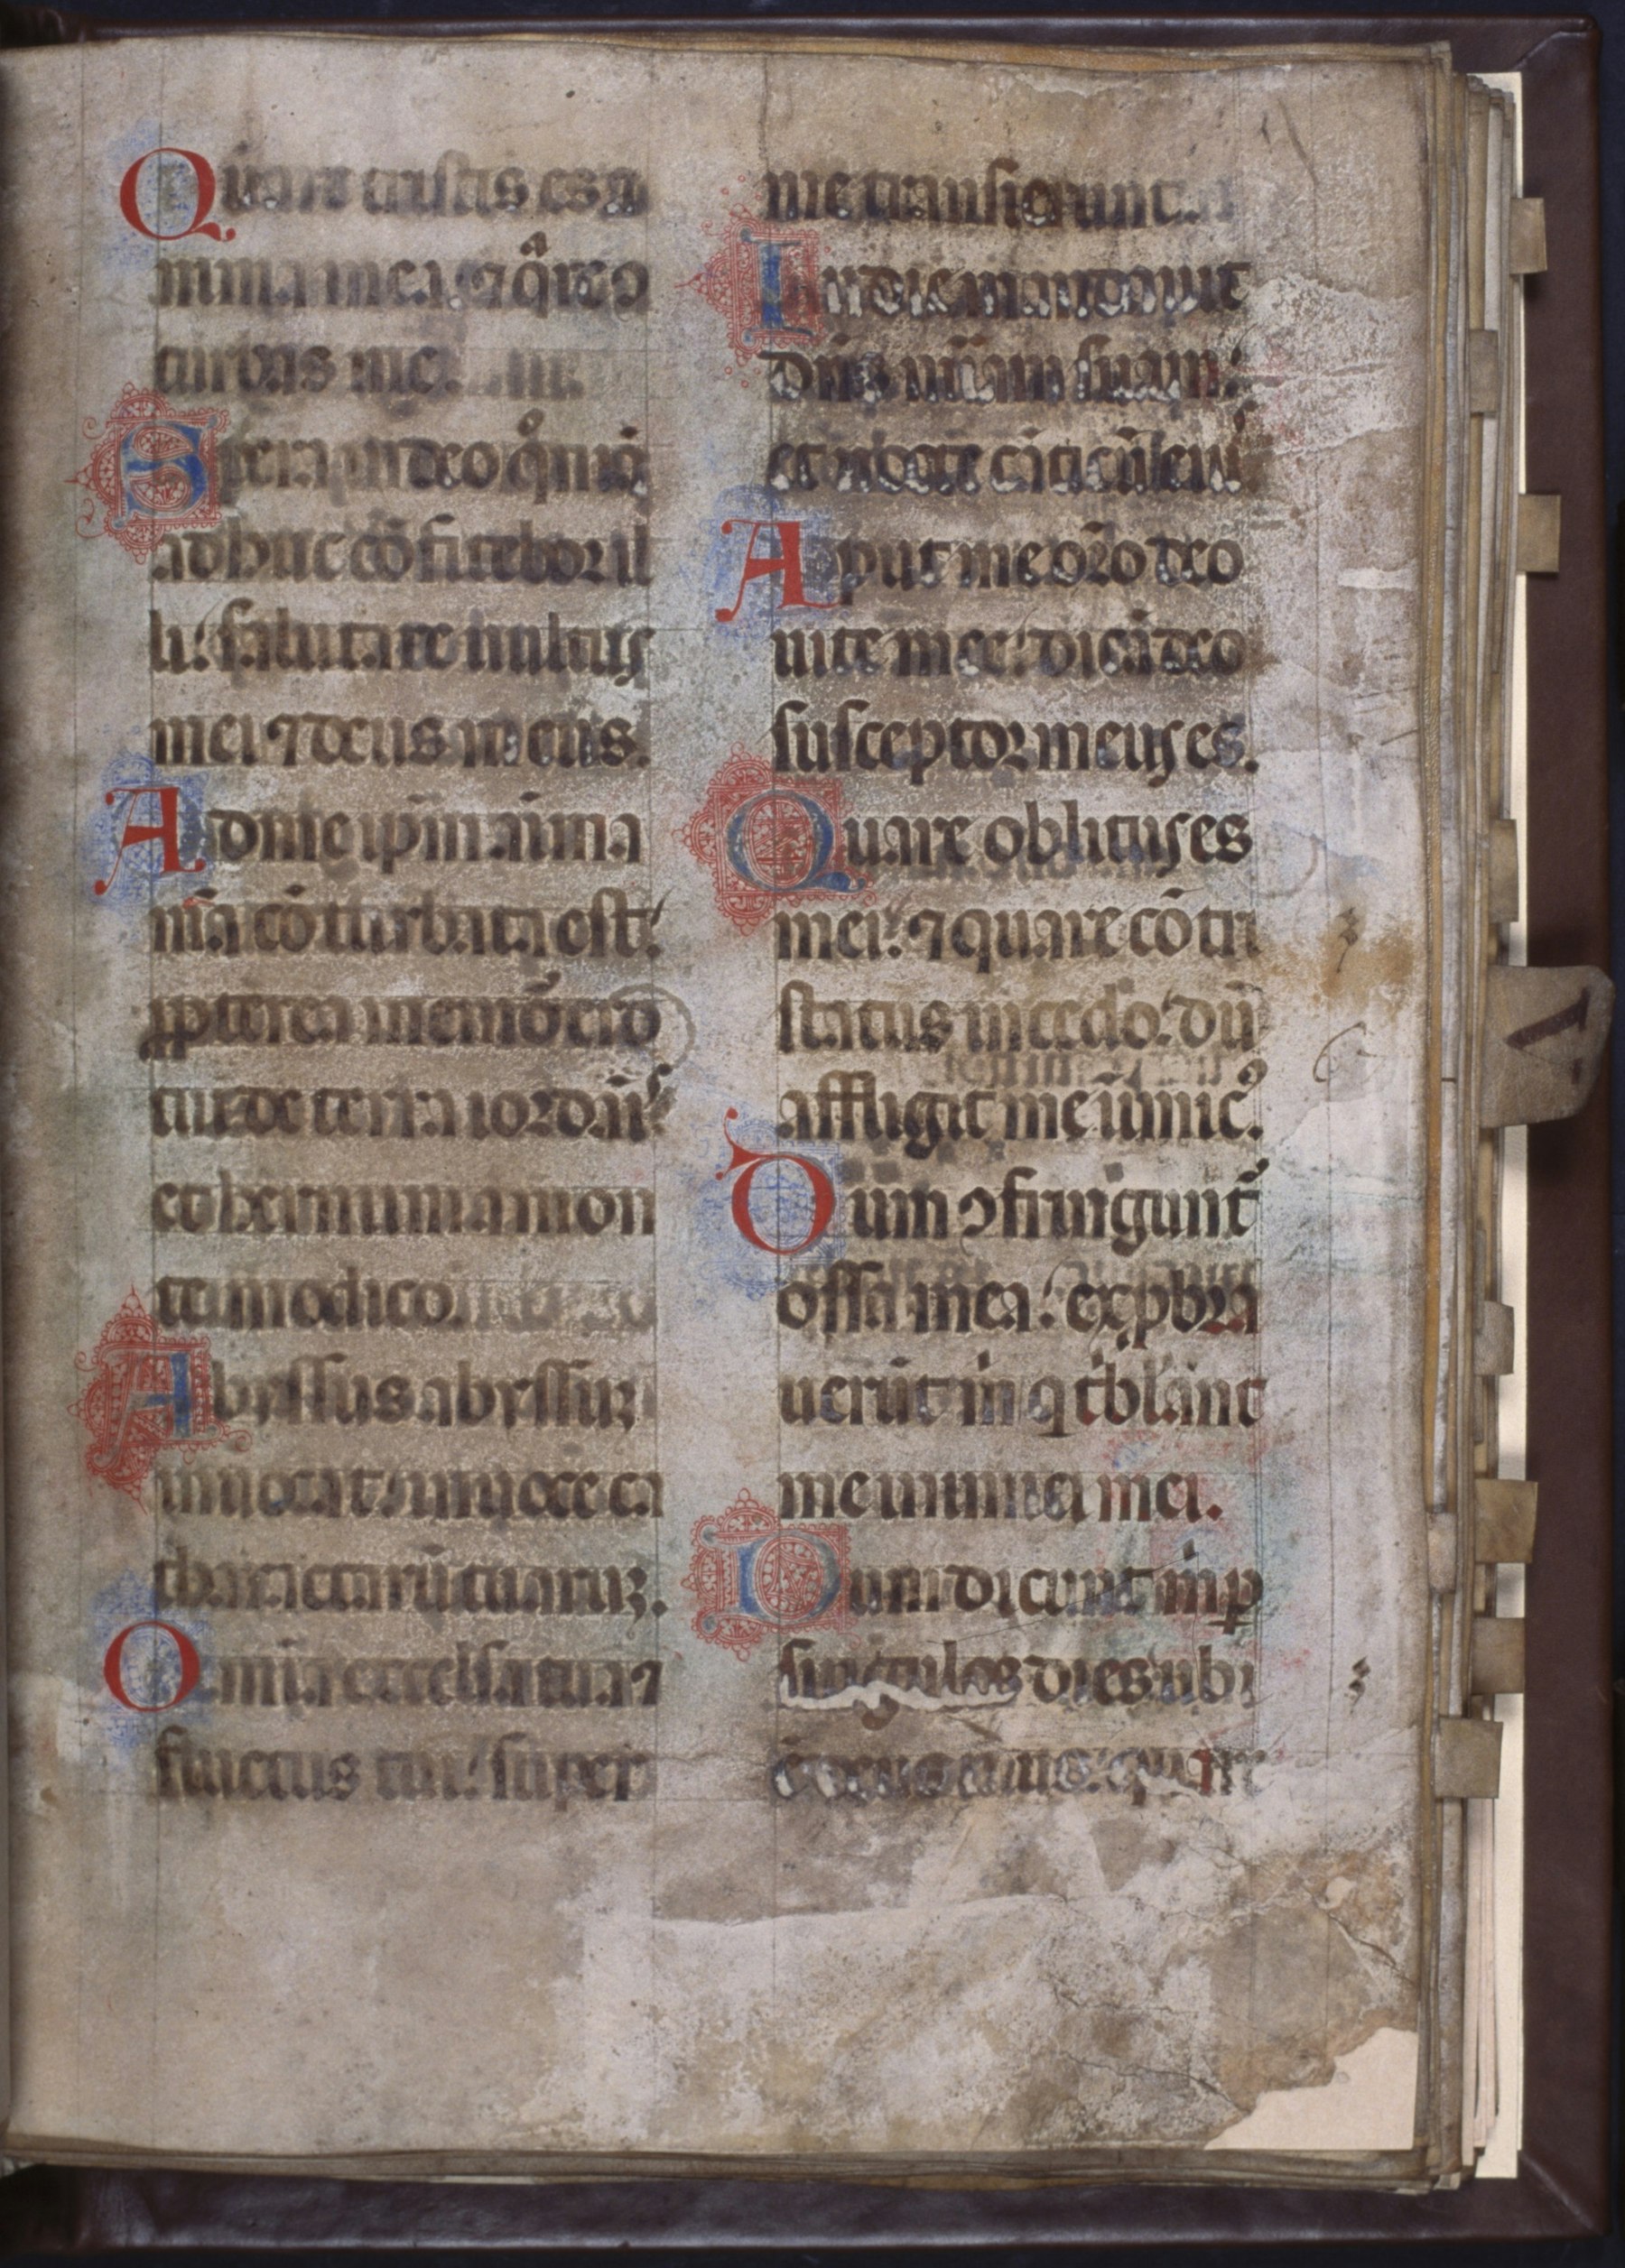 Quare tristis es a
nima mea: ⁊ q̊re ꝯ
turbas me.
Spera in deo q̊niā
adhuc cōfitebor il
li: salutare uultus
mei ⁊ deus meus.
Ad me ip̄m anima
mea cōturbata est:
ꝓpterea memor ero
tui de terra iordāis
et hermonium a mon
te modico.
Abyssus abyssum
inuocat: in uoce ca
tharactarū tuarum.
Omnia excelsa tua ⁊
fluctus tui: super
me transierunt.
In die mandauit
dn̄s mīam suam:
et nocte cāticū eiuˀ
Aput me or̄o deo
uite mee: dicā deo
susceptor meus es.
Quare oblitus es
mei: ⁊ quare cōtri
status incedo: dū
affligit me inimicꝰ.
Dum ꝯfringunt᷑
ossa mea: exprobra
uerūt m̄ q tͥblant
me inimici mei.
Dum dicunt m̄ ꝑ
singulos dies ubi
ē deus tuus: quare
V